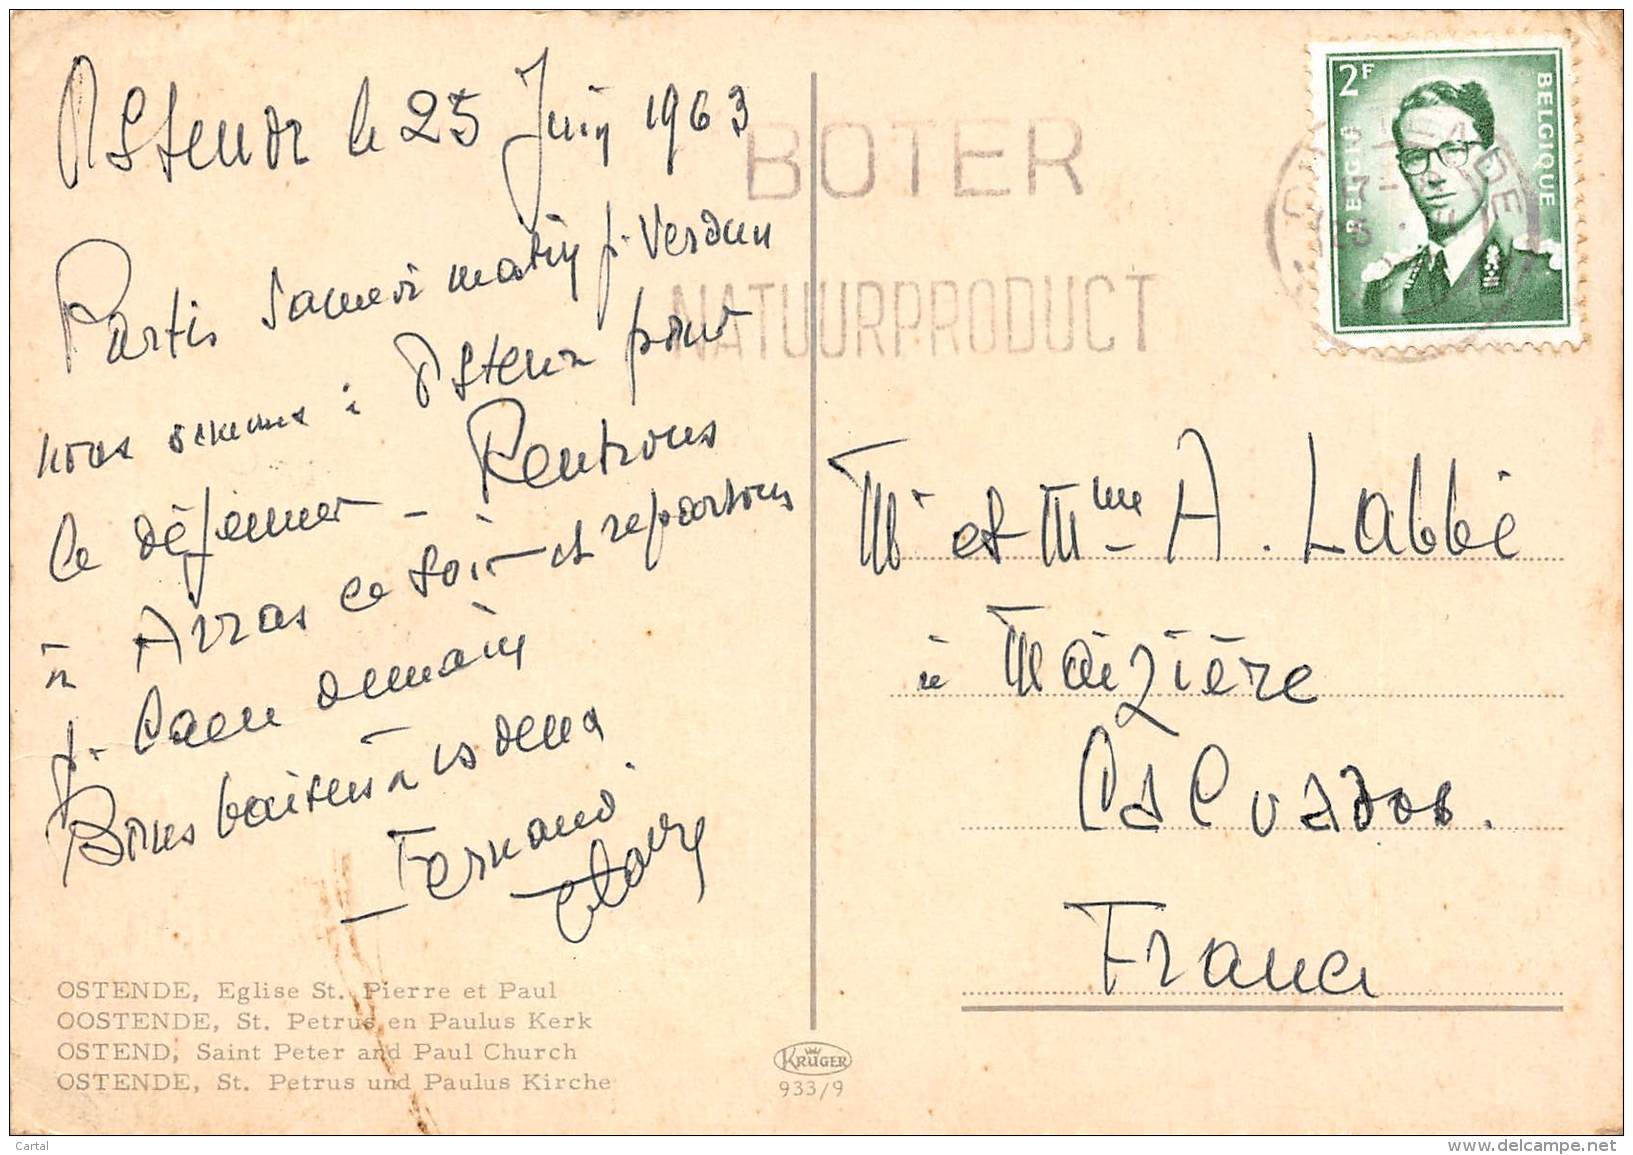 Ostende le 25 Juin 1963
Partis Samedi matin p. Verdun
nous sommes à Ostende pour
le déjeuner - Rentrons
à Arras ce soir et repartons
p. Caen demain
Bons baisers à vs deux
Fernand
OSTENDE, Eglise St. Pierre et Paul
OOSTENDE, St. Petrus en Paulus Kerk
OSTEND, Saint Peter and Paul Church
OSTENDE, St. Petrus und Paulus Kirche
BOTER
NATUURPRODUCT
2F
BELGIE
BELGIQUE
Mr et Mme A. Labbé
à Maizière
Calvados.
France
KRÜGER
933/9
Cartal
www.delcampe.net